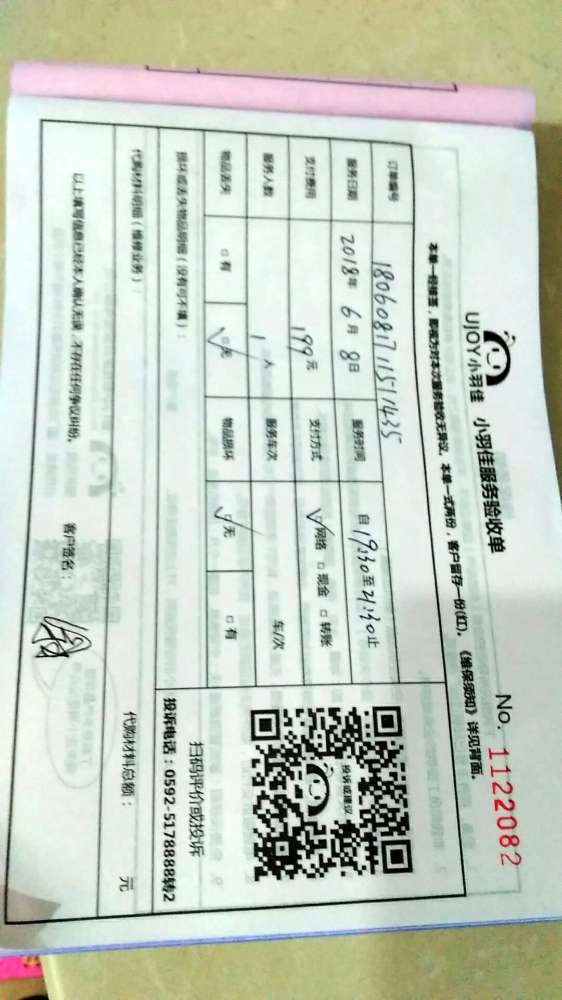 UJOY小羽佳 小羽佳服务验收单
No. 1122082
本单一经签签，即视为对本次服务验收无异议。本单一式两份，客户留存一份(红)。《维保须知》详见背面。
订单编号 18060817115711435
服务日期 2018年6月8日 服务时间 自19:30至21:30止
支付费用 199元 支付方式 ☑网络 □现金 □转账
服务人数 1人 服务车次 车/次
物品丢失 □有 ☑无 物品损坏 ☑无 □有
投诉或建议
扫码评价或投诉
损坏或丢失物品明细（没有可不填）：
投诉电话：0592-5178888转2
代购材料明细（维修业务）：
代购材料总额： 元
以上填写信息已经本人确认无误，不存在任何争议纠纷。
客户签名：